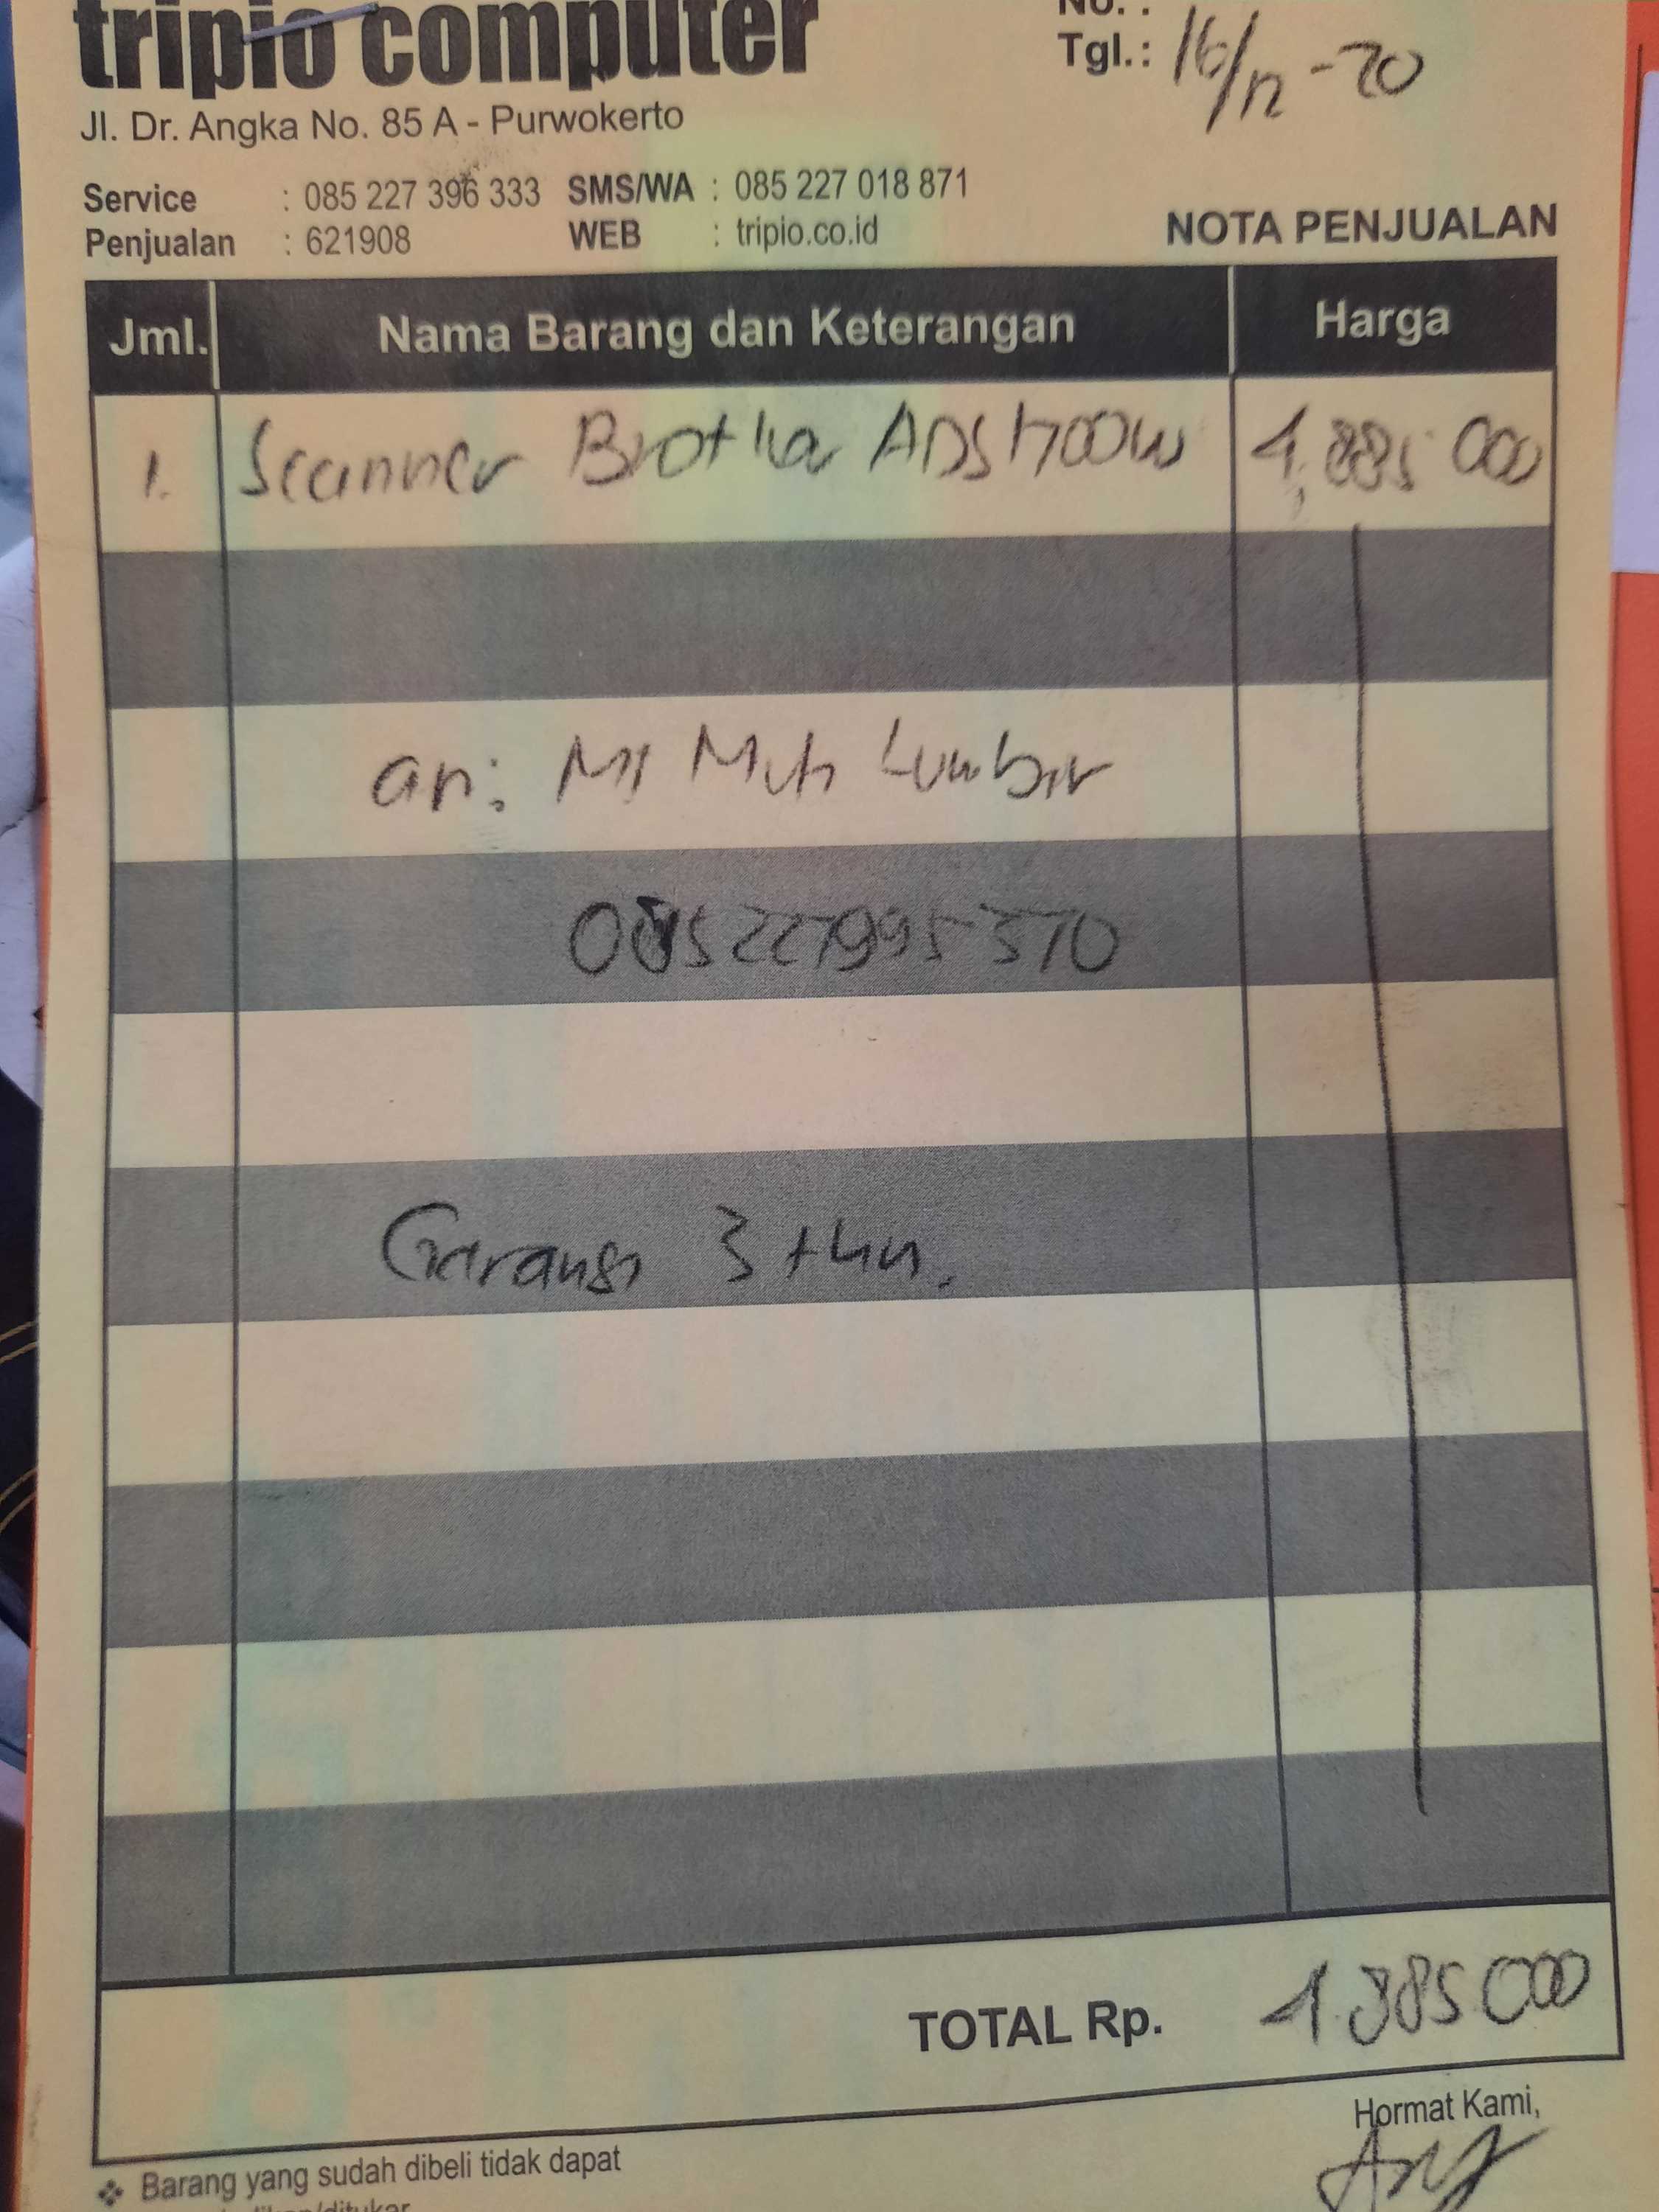 tripio computer
No. :
Tgl.: 16/12 - 20
Jl. Dr. Angka No. 85 A - Purwokerto
Service : 085 227 396 333 SMS/WA : 085 227 018 871
Penjualan : 621908 WEB : tripio.co.id
NOTA PENJUALAN
Jml. Nama Barang dan Keterangan Harga
1. Scanner Brother ADS 1700W 4,885 000
an: MI Muh Lumbir
Garansi 3 thn.
TOTAL Rp. 4.885 000
Hormat Kami,
❖ Barang yang sudah dibeli tidak dapat